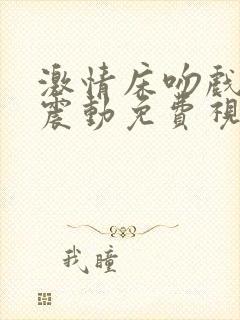 激情床吻戲
震動免費視
我瞳